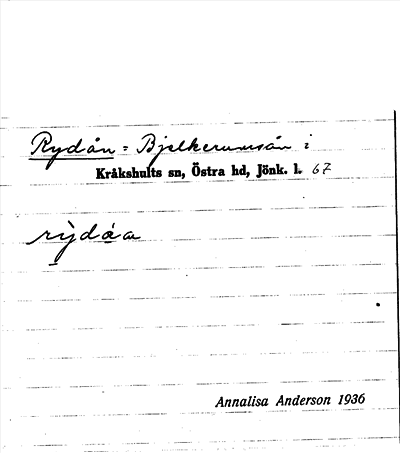 Rydån = Bjelkerumsån i
Kråkshults sn, Östra hd, Jönk. l. 67
rỳdáa
Annalisa Anderson 1936